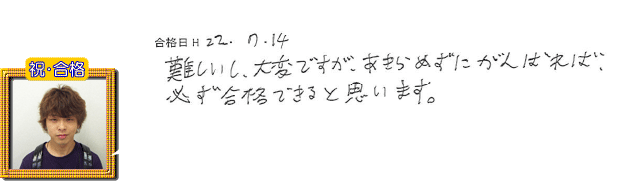 合格日 H 22. 7. 14
祝・合格
難しいし、大変ですが、あきらめずにがんばれば、
必ず合格できると思います。